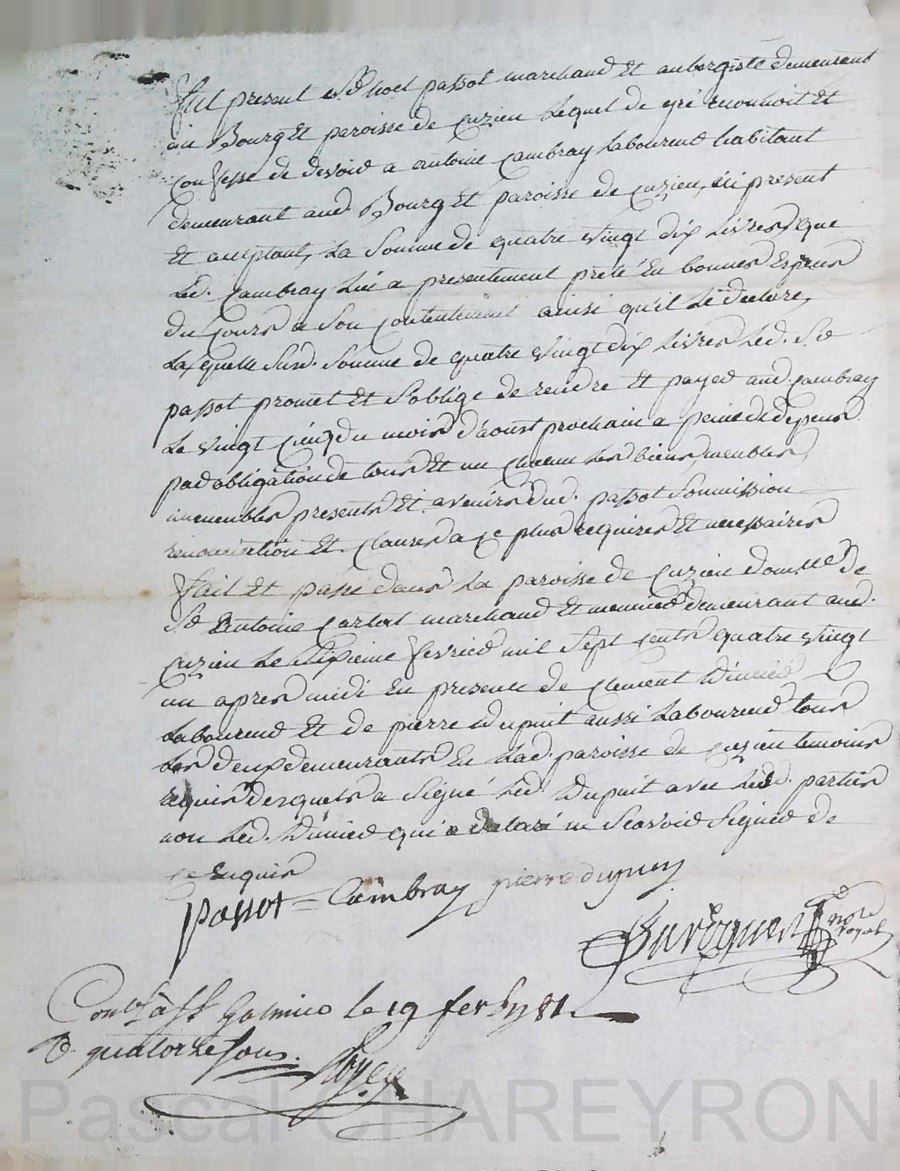 fut present Sr. Noel passot marchand et aubergiste demeurant
au Bourg et paroisse de Cuzieu Lequel de gré reconnoit et
confesse de devoir a antoine Cambray Laboureur habitant
demeurant aud. Bourg et paroisse de Cuzieu, ici present
et acceptant, La Somme de quatre vingt dix Livres que
Led. Cambray Lui a presentement preté En bonnes Especes
du Cours a Son Contentement ainsi qu'il Le declare,
Laquelle Susd. Somme de quatre vingt dix Livres Led. Sr
passot promet et S'oblige de rendre et payer aud. Cambray
Le vingt cinq du mois d'aoust prochain a peine de depens
par obligation de tous et un chacun Ses biens, meubles,
immeubles presents et avenirs dud. passot Soumission
renonciation et Clauses a ce plus requises et necessaires
fait et passé dans La paroisse de Cuzieu domlle de
Sr Antoine Cartat marchand et meunier demeurant aud.
Cuzieu Le dixieme fevrier mil Sept cents quatre vingt
un apres midi En presence de Clement
Laboureur et de pierre Dupuit aussi Laboureur tous
Les deux demeurants En Lad. paroisse de Cuzieu temoins
requis desquels a Signé Led. Dupuit avec Lesd. parties
non Led. qui a declaré ne Scavoir Signer de
ce Enquis
passot = Cambray pierre dupuy
nore
royal
Conlé a St Galmier le 19 fer 1781
R quatorze sous.
Pascal CHAREYRON